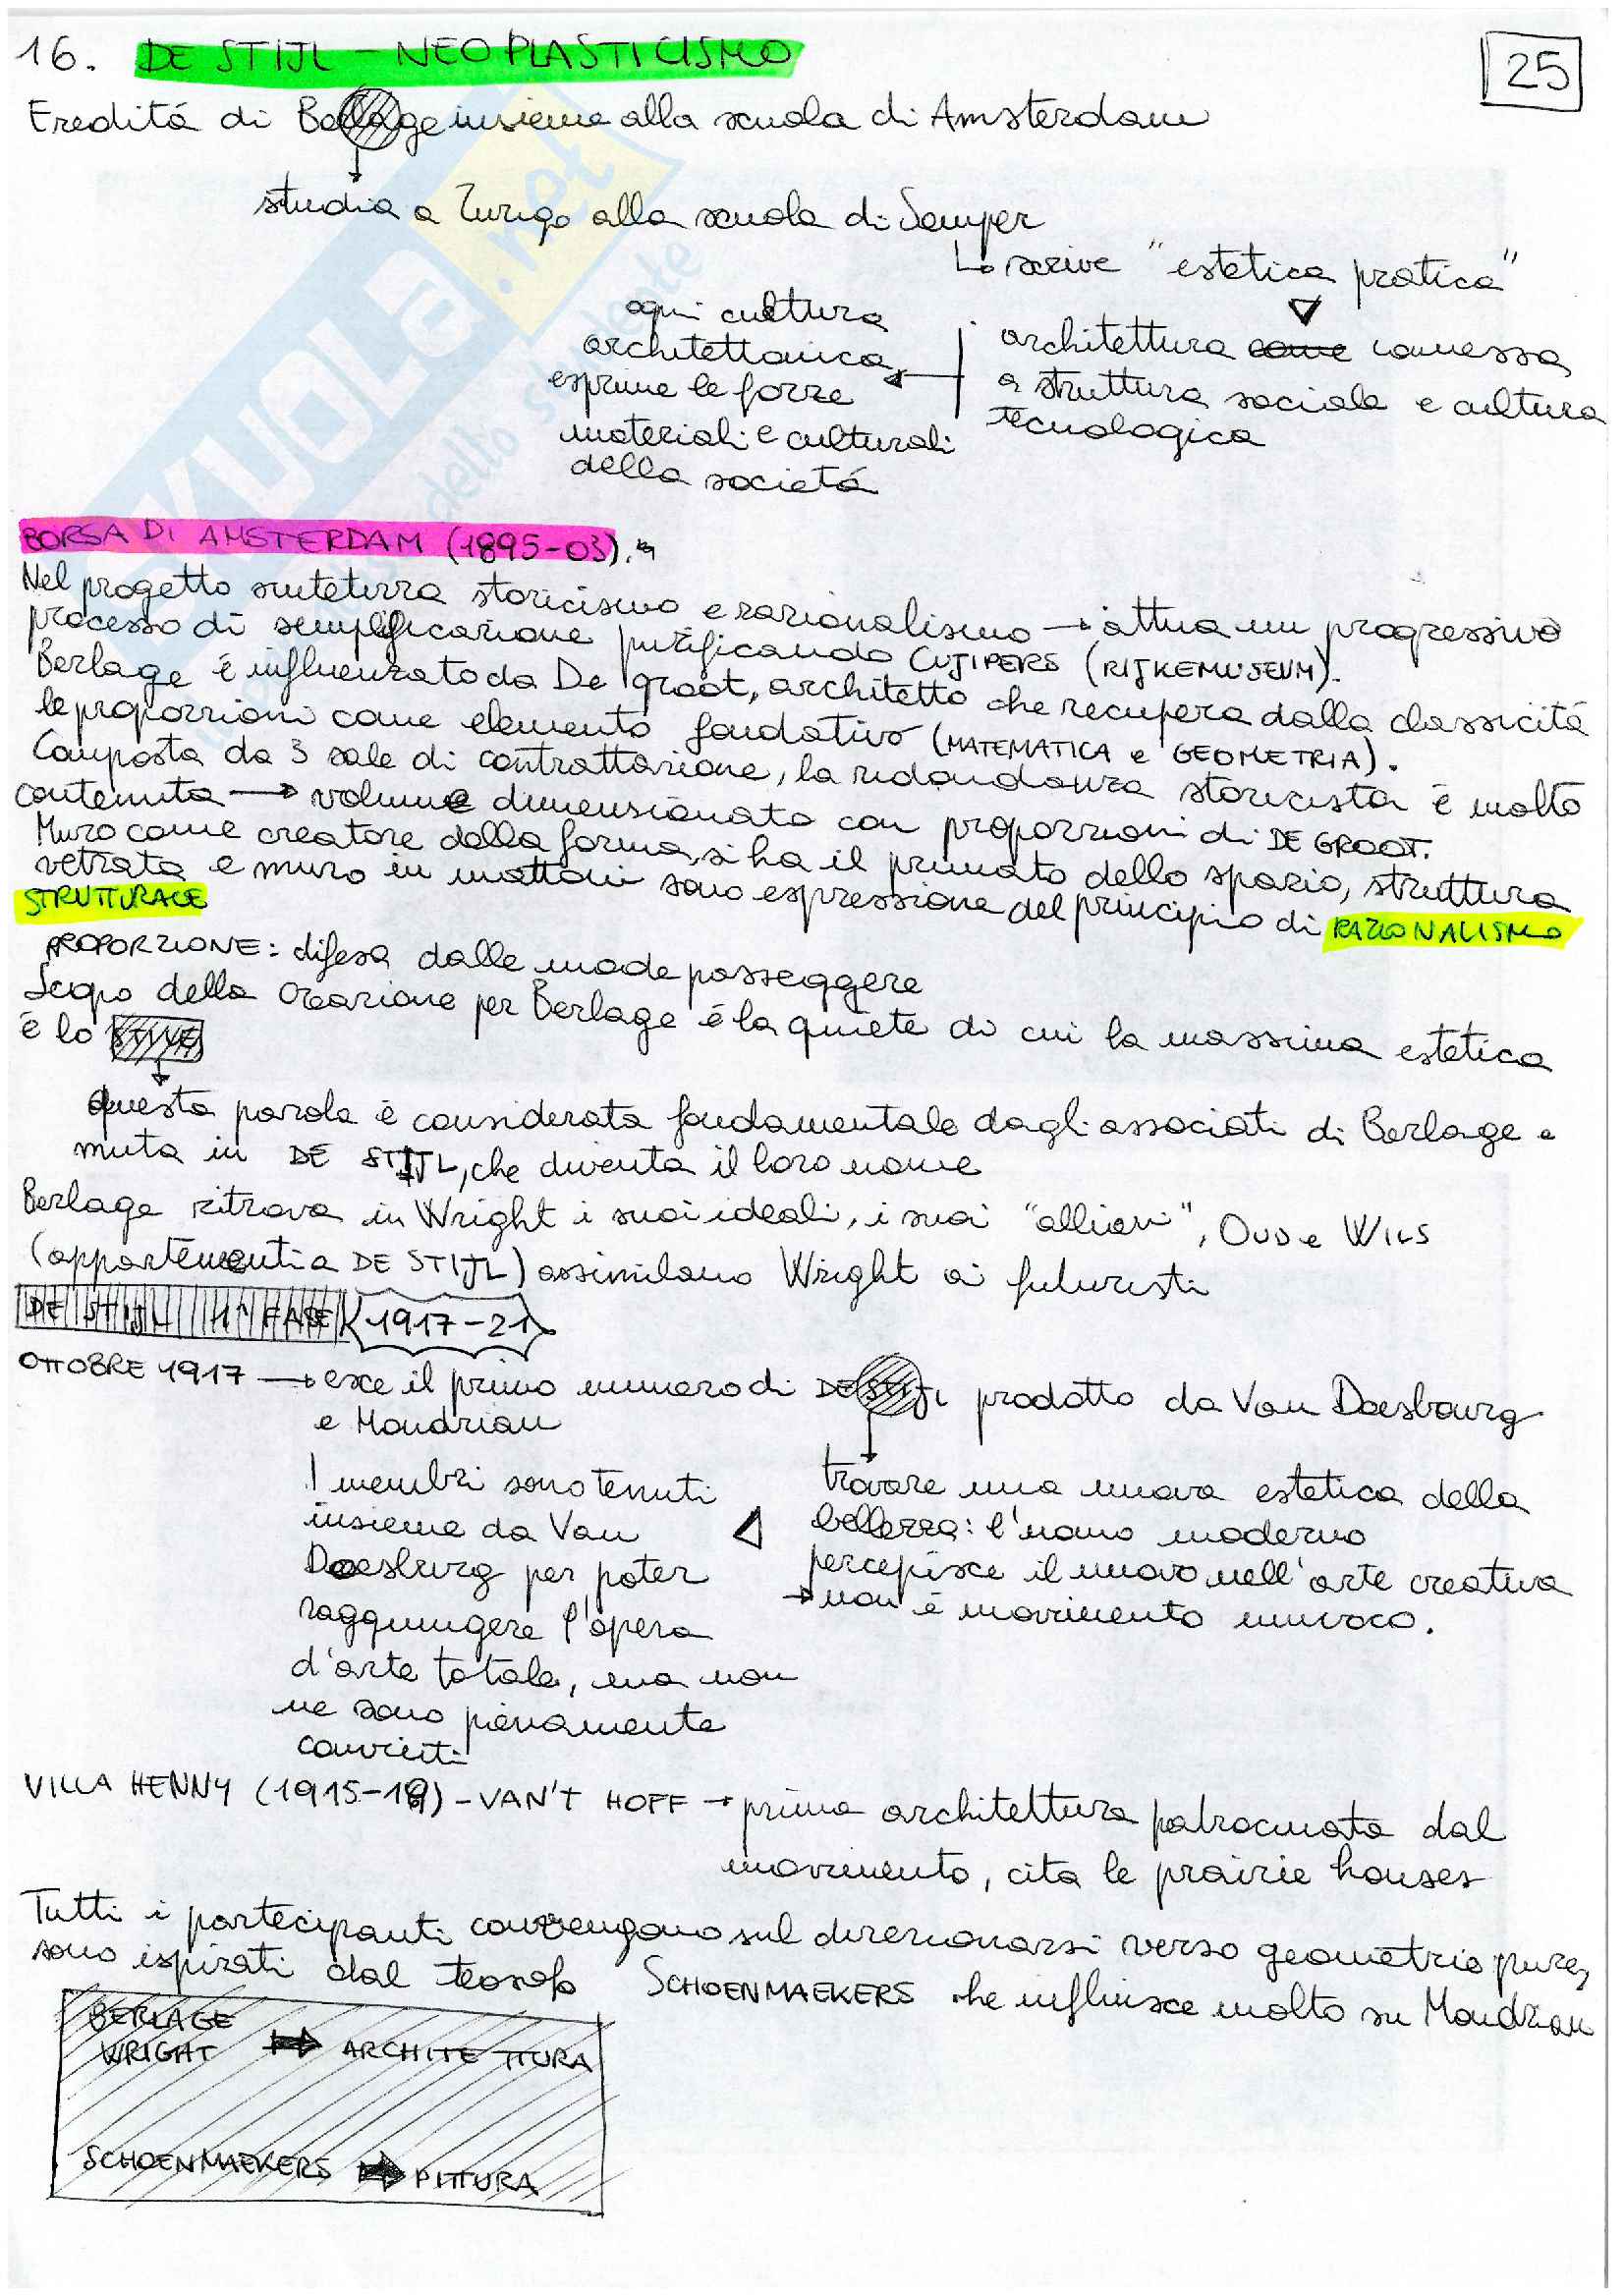 16. DE STIJL - NEOPLASTICISMO
25
Eredità di Berlage insieme alla scuola di Amsterdam
studia a Zurigo alla scuola di Semper
scrive "estetica pratica"
architettura come connessa
a struttura sociale e cultura
tecnologica
ogni cultura
architettonica
esprime le forze
materiali e culturali
della società
BORSA DI AMSTERDAM (1895-03).
Nel progetto sintetizza storicismo e razionalismo → attua un progressivo
processo di semplificazione purificando CUJIPERS (RIJKEMUSEUM).
Berlage é influenzato da De groot, architetto che recupera dalla classicità
le proporzioni come elemento fondativo (MATEMATICA e GEOMETRIA).
Composta da 3 sale di contrattazione, la ridondanza storicista é molto
contenuta → volume dimensionato con proporzioni di DE GROOT.
Muro come creatore della forma, si ha il primato dello spazio, struttura
vetrata e muro in mattoni sono espressione del principio di RAZIONALISMO
STRUTTURALE
PROPORZIONE: difesa dalle mode passeggere
Scopo della creazione per Berlage é la quiete di cui la massima estetica
é lo STILE
questa parola é considerata fondamentale dagli associati di Berlage e
muta in DE STIJL, che diventa il loro nome
Berlage ritrova in Wright i suoi ideali, i suoi "allievi", OUD e WILS
(appartenenti a DE STIJL) assimilano Wright ai futuristi
DE STIJL 1ª FASE (1917-21)
OTTOBRE 1917 → esce il primo numero di DE STIJL prodotto da Van Doesbourg
e Mondrian
trovare una nuova estetica della
bellezza: l'uomo moderno
percepisce il nuovo nell'arte creativa
→ non é movimento univoco.
I membri sono tenuti
insieme da Van
Doesburg per poter
raggiungere l'opera
d'arte totale, ma non
ne sono pienamente
convinti
VILLA HENNY (1915-19) - VAN'T HOFF → prima architettura patrocinata dal
movimento, cita le prairie houses
Tutti i partecipanti convengono sul direzionarsi verso geometrie pure,
sono ispirati dal teosofo SCHOENMAEKERS che influisce molto su Mondrian
BERLAGE
WRIGHT → ARCHITETTURA
SCHOENMAEKERS → PITTURA
SKUOLA.net